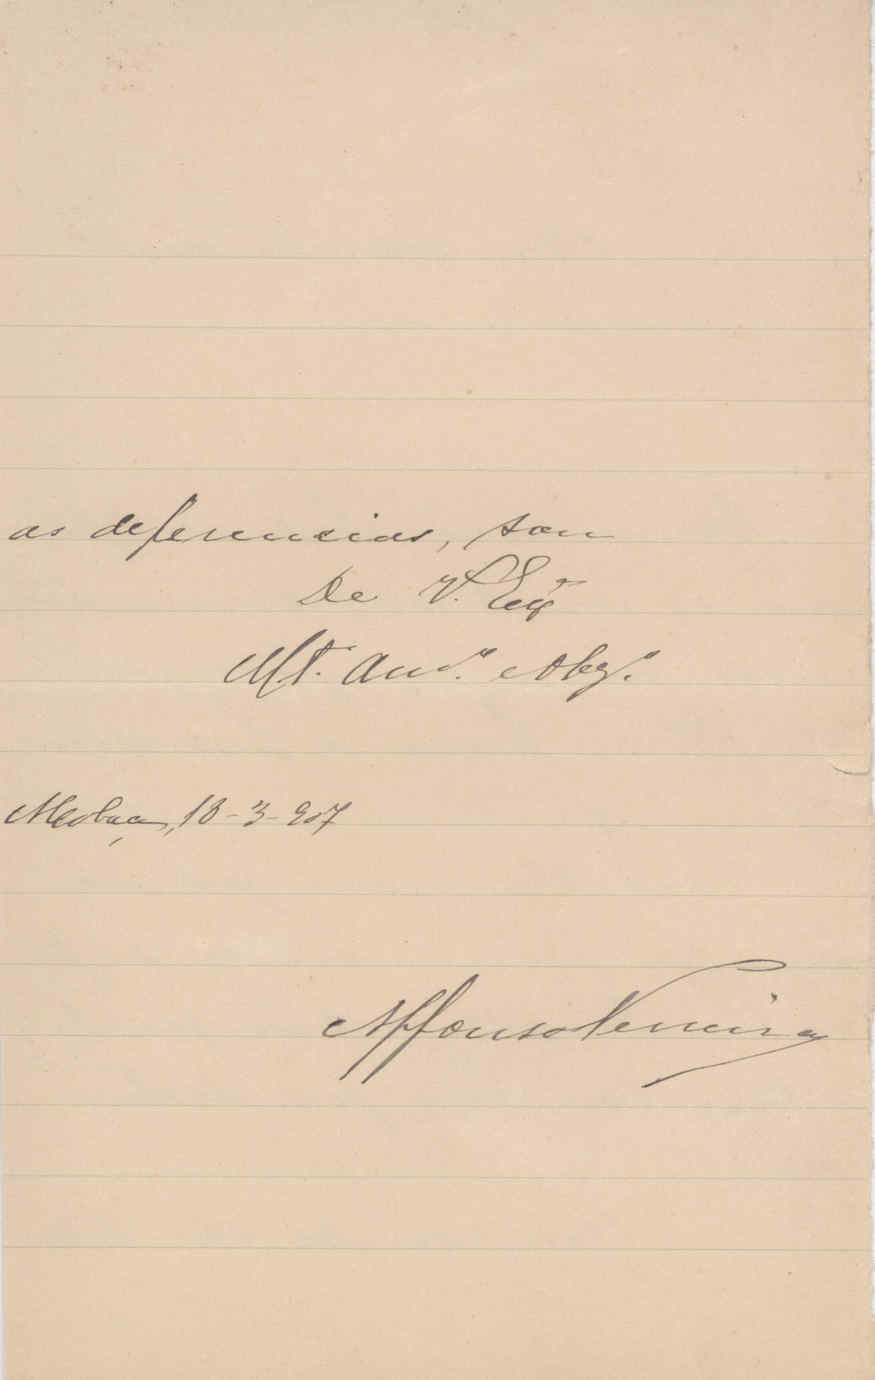 as deferencias, sou
De V. Exª
Mt. Amº. e Obgº.
Alcobaça, 18-3-907
Affonso Ferreira